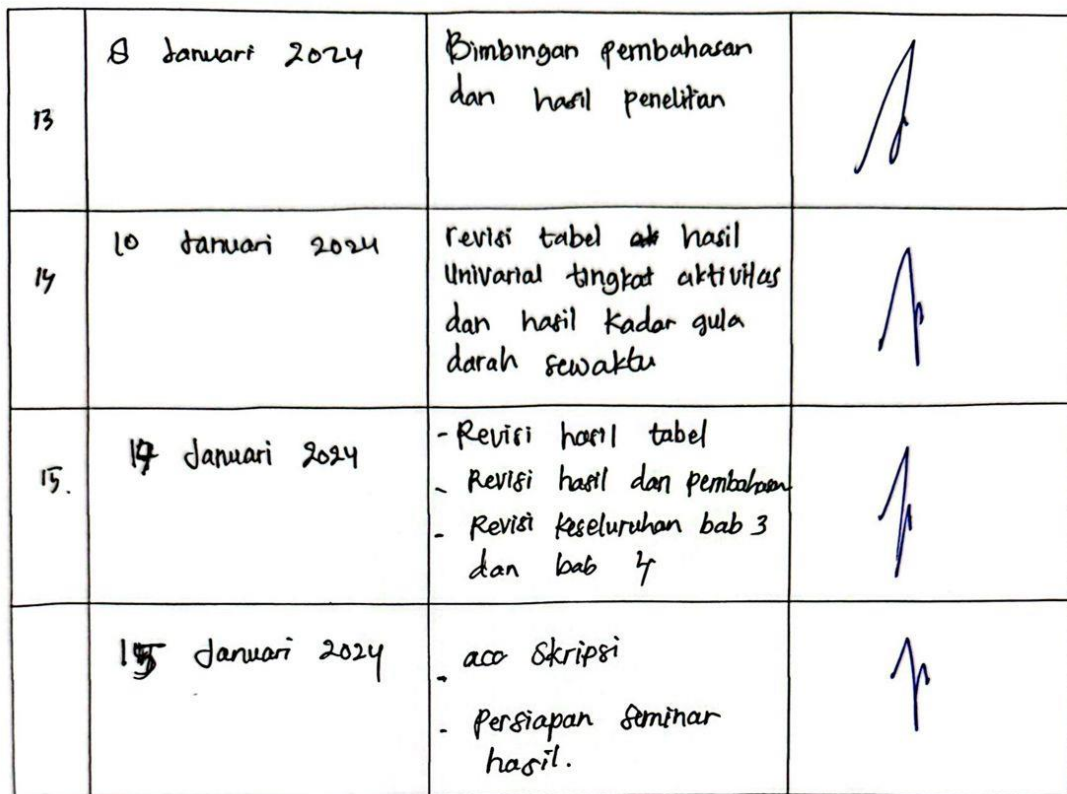 13
8 Januari 2024
Bimbingan pembahasan
dan hasil penelitian
14
10 Januari 2024
revisi tabel hasil
Univarial tingkat aktivitas
dan hasil Kadar gula
darah sewaktu
15.
Januari 2024
- Revisi hasil tabel
- Revisi hasil dan pembahasan
- Revisi keseluruhan bab 3
dan bab 4
15 Januari 2024
- acc Skripsi
- Persiapan Seminar
hasil.